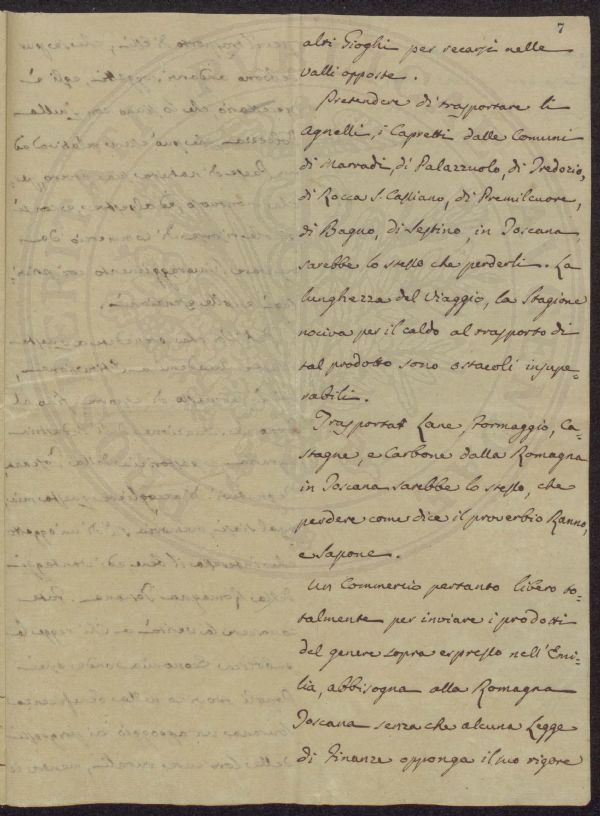 7
altri Gioghi per recarsi nelle
valli opposte.
Pretendere di trasportare li
agnelli, i Capretti dalle Comuni
di Marradi, di Palazzuolo, di Tredozio,
di Rocca S. Cassiano, di Premilcuore,
di Bagno, di Sestino, in Toscana
sarebbe lo stesso che perderli. La
lunghezza del Viaggio, la Stagione
nociva per il caldo al trasporto di
tal prodotto sono ostacoli insupe-
rabili.
Trasportar Lane, Formaggio, Ca-
stagne, e Carbone dalla Romagna
in Toscana sarebbe lo stesso, che
perdere come dice il proverbio Ranno,
e Sapone.
Un Commercio pertanto libero to-
talmente per inviare i prodotti
del genere sopra espresso nell'Emi-
lia, abbisogna alla Romagna
Toscana senza che alcuna Legge
di Finanze opponga il suo rigore